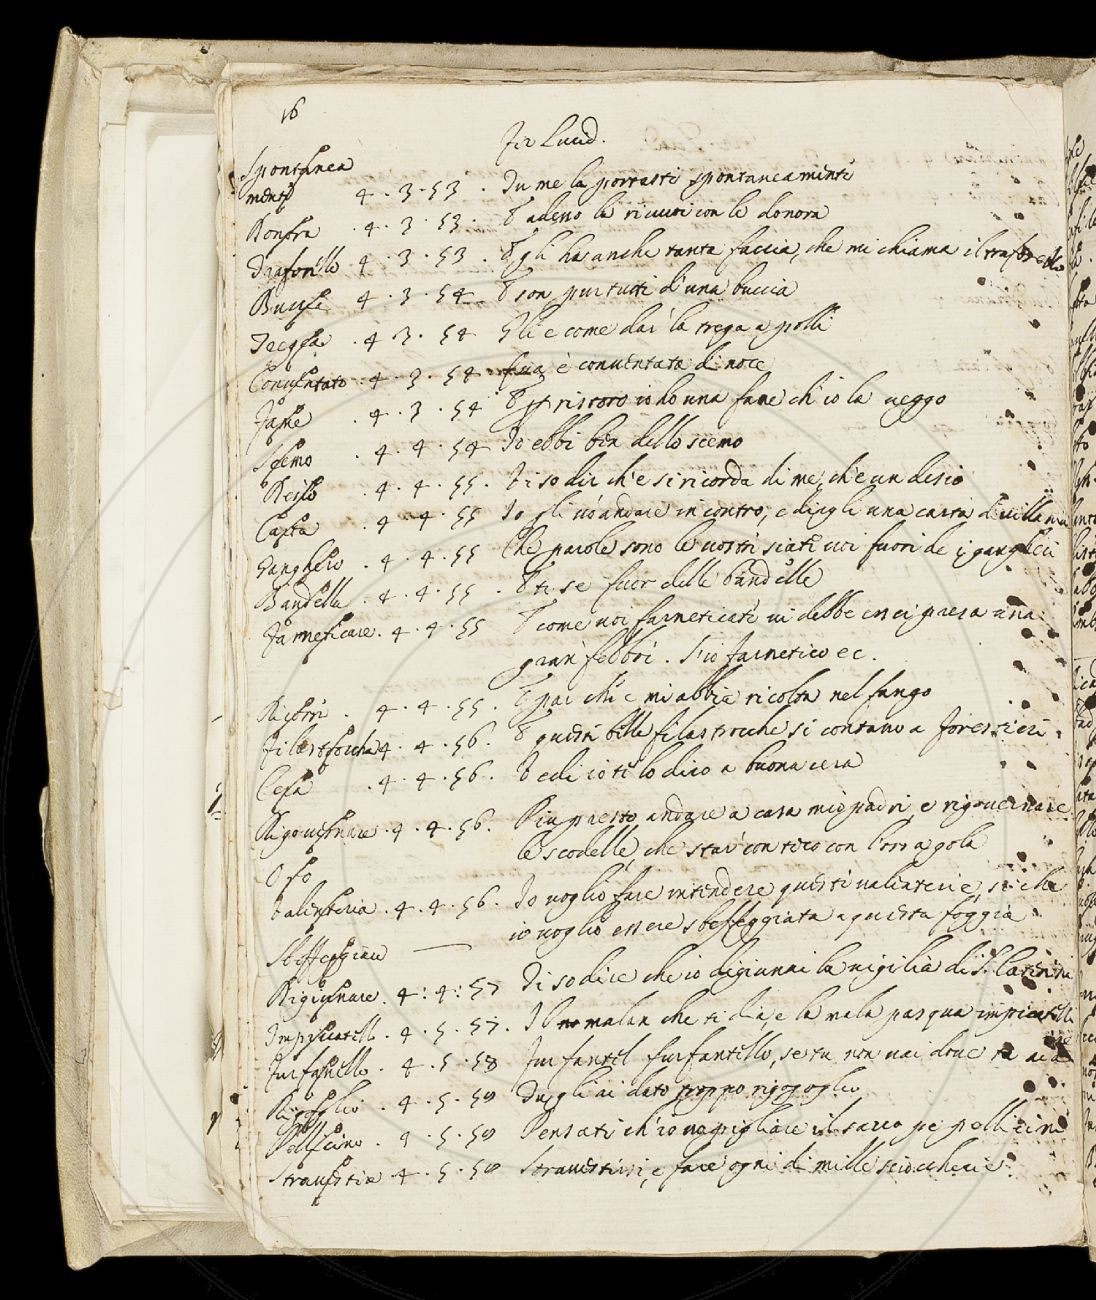 16
Fir Lucid.
Spontanea
mente 4 . 3 . 53 . Tu me la portasti spontaneamente
4 . 3 . 53 . E adesso le ricuuri con le donora
4 . 3 . 53 . Egli ha anche tanta faccia, che mi chiama il
Buccia 4 . 3 . 54 E son pur tutti d'una buccia
4 . 3 . 54 Gli e come dar la trega a polli
Conuentato . 4 . 3 . 54 è conuentata di noce
Fame . 4 . 3 . 54 E ristoro io ho una fame ch'io la ueggo
Scemo . 4 . 4 . 54 Io ebbi ben dello scemo
4 . 4 . 55 . Ti so dir ch'e si ricorda di me, ch'è un desio
Carta . 4 . 4 . 55 Io gli uo andare incontro, e dirgli una carta di uillania
Ganghero . 4 . 4 . 55 Che parole sono le uostre siate uoi fuori de i gangheri
Bandella . 4 . 4 . 55 . E ti se fuor delle bandelle
Farneticare . 4 . 4 . 55 E come uoi farneticate ui debbe esserci presa una
gran febbre . S'io farnetico ec .
Ricorre . 4 . 4 . 55 . E par ch'e mi abbia ricolta nel fango
Filastrocche 4 . 4 . 56 . E queste belle filastrocche si contano a forestieri
Cera . 4 . 4 . 56 . Vedi io ti lo dico a buona cera
Rigouernare . 4 . 4 . 56 . Piu presto andare a casa mio padre, e rigouernare
Oro le scodelle, che star con teco con l'oro a gola
Valenteria . 4 . 4 . 56 . Io uoglio fare intendere queste ualenterie, si che
io uoglio essere sbeffeggiata a questa foggia
Sbeffeggiare
Digiunare . 4 . 4 . 57 Ti so dire che io digiunai la uigilia di S. Caterina
4 . 5 . 57 . Il malan che ti dia, e la mala pasqua
Furfantello . 4 . 5 . 58 Furfantel furfantello, se tu non uai doue
Rigoglio . 4 . 5 . 58 Tu gli ai dato troppo rigogoglio
Pellicino . 4 . 5 . 58 Pensati ch'io uo pigliare il sacco pe pellicini
Strauestire 4 . 5 . 58 Strauestirsi, e fare ogni di mille sciocherie